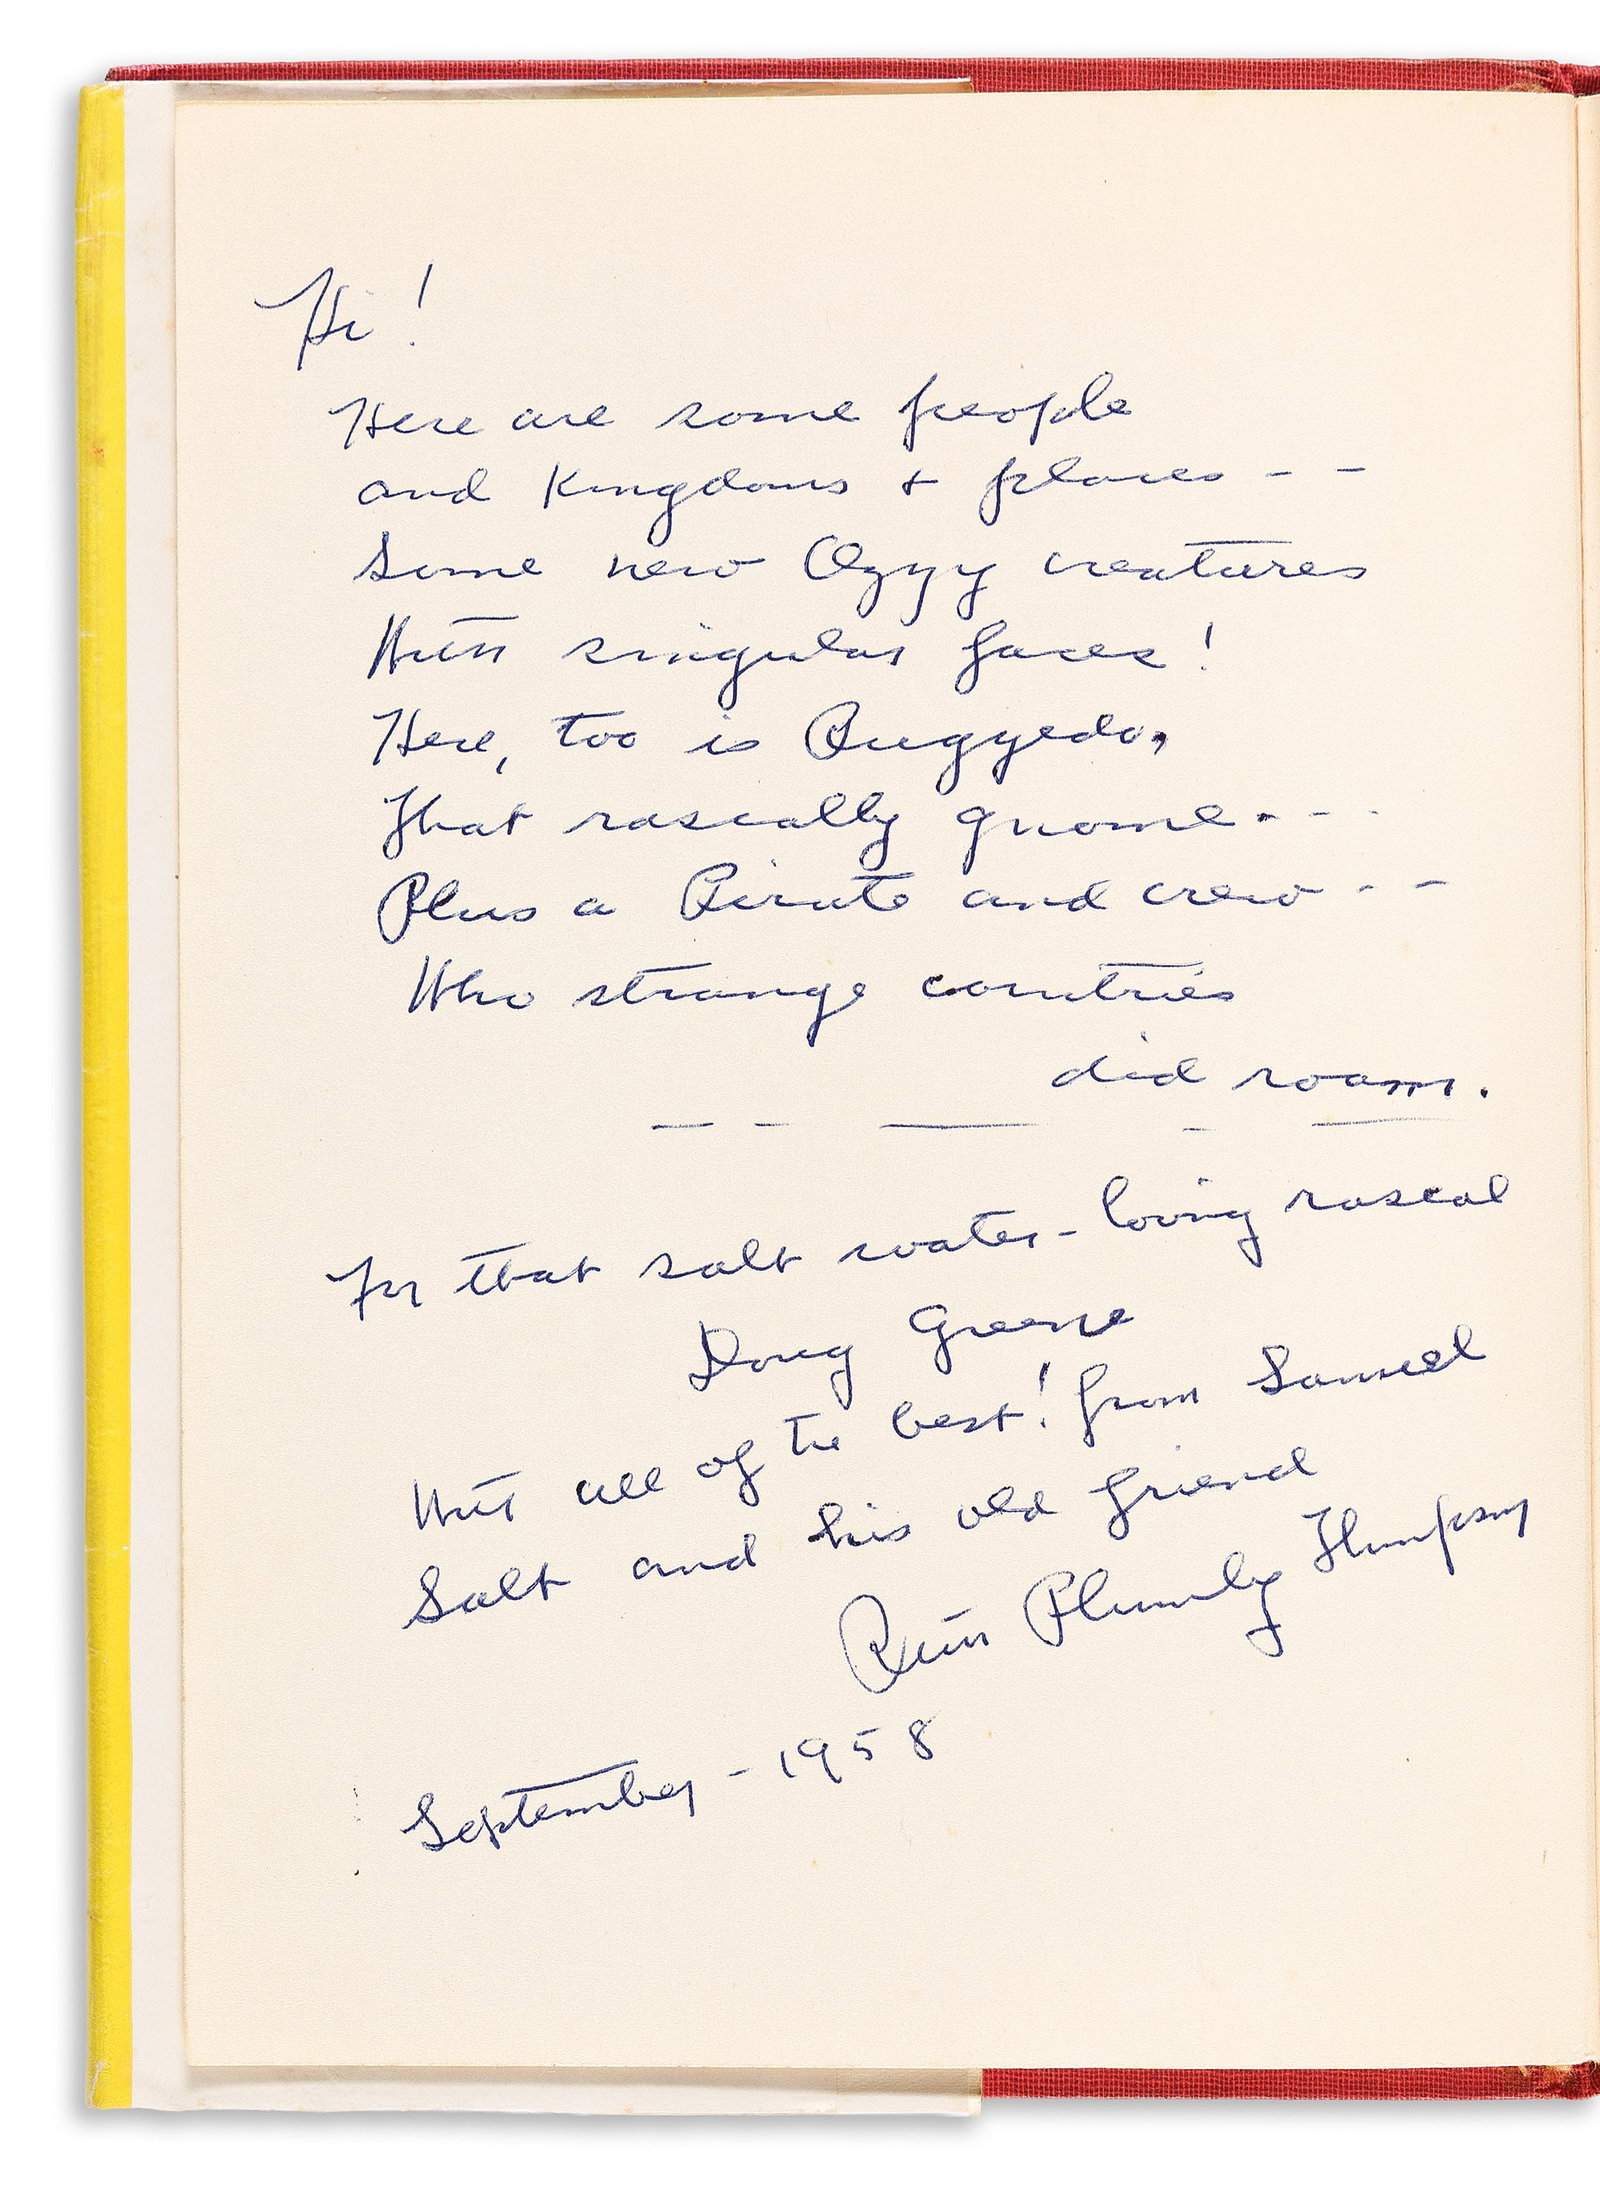 Hi!
Here are some people
and Kingdoms + places - -
Some new Ozzy creatures
With singular faces!
Here, too is Ruggedo,
That rascally gnome - - -
Plus a Pirate and crew - -
Who strange countries
did roam.
For that salt water-loving rascal
Doug Greene
With all of the best! from Samuel
Salt and his old friend
Ruth Plumly Thompson
September - 1958